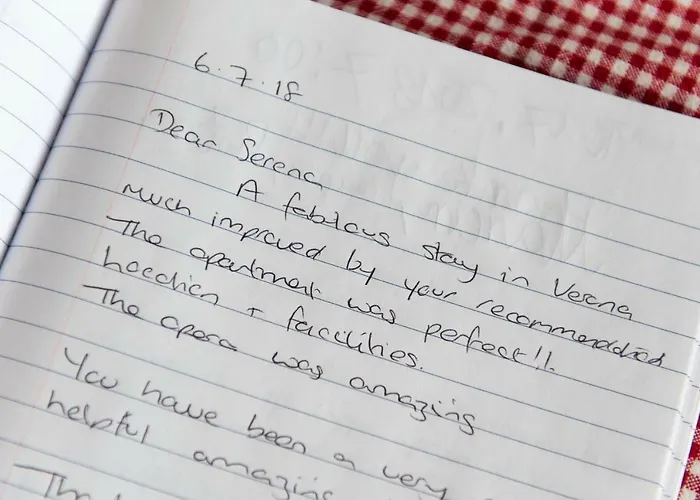 6.7.18
Dear Serena
A fabulous stay in Verona
much improved by your recommendations
The apartment was perfect!!
location + facilities.
The opera was amazing
You have been a very
helpful amazing